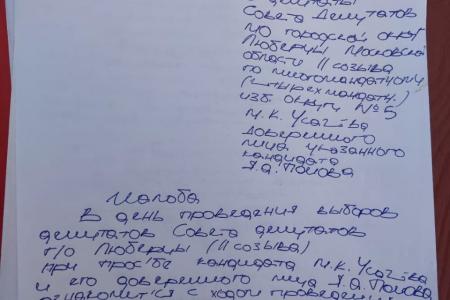 депутаты
Совета Депутатов
МО городской округ
Люберцы Московской
области II созыва
по многомандатному
(четырехмандатн.)
изб. округу №5
М.К. Усачёва
доверенного
лица указанного
кандидата
Я.А. Попова
Жалоба
В день проведения выборов
депутатов Совета депутатов
г/о Люберцы (II созыва)
при просьбе кандидата М.К. Усачёва
и его доверенного лица Я.А. Попова
ознакомится с ходом